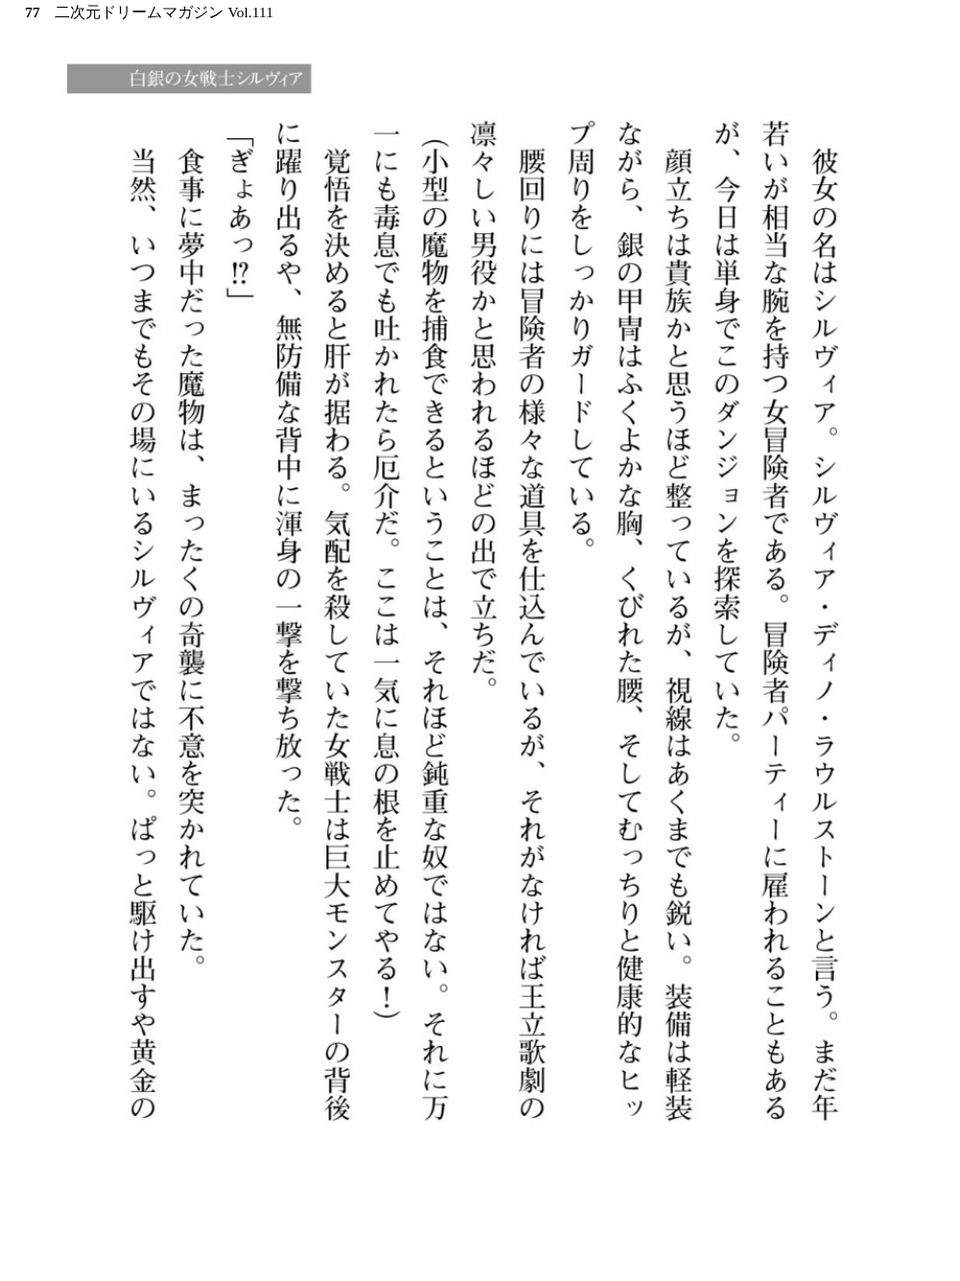 77 二次元ドリームマガジン Vol.111
白銀の女戦士シルヴィア
　彼女の名はシルヴィア。シルヴィア・ディノ・ラウルストーンと言う。まだ年
若いが相当な腕を持つ女冒険者である。冒険者パーティーに雇われることもある
が、今日は単身でこのダンジョンを探索していた。
　顔立ちは貴族かと思うほど整っているが、視線はあくまでも鋭い。装備は軽装
ながら、銀の甲冑はふくよかな胸、くびれた腰、そしてむっちりと健康的なヒッ
プ周りをしっかりガードしている。
　腰回りには冒険者の様々な道具を仕込んでいるが、それがなければ王立歌劇の
凛々しい男役かと思われるほどの出で立ちだ。
（小型の魔物を捕食できるということは、それほど鈍重な奴ではない。それに万
一にも毒息でも吐かれたら厄介だ。ここは一気に息の根を止めてやる！）
　覚悟を決めると肝が据わる。気配を殺していた女戦士は巨大モンスターの背後
に躍り出るや、無防備な背中に渾身の一撃を撃ち放った。
「ぎょあっ!?」
　食事に夢中だった魔物は、まったくの奇襲に不意を突かれていた。
　当然、いつまでもその場にいるシルヴィアではない。ぱっと駆け出すや黄金の